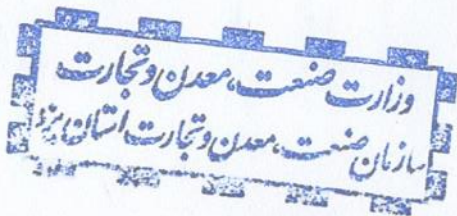 وزارت صنعت، معدن و تجارت
سازمان صنعت، معدن و تجارت استان یزد